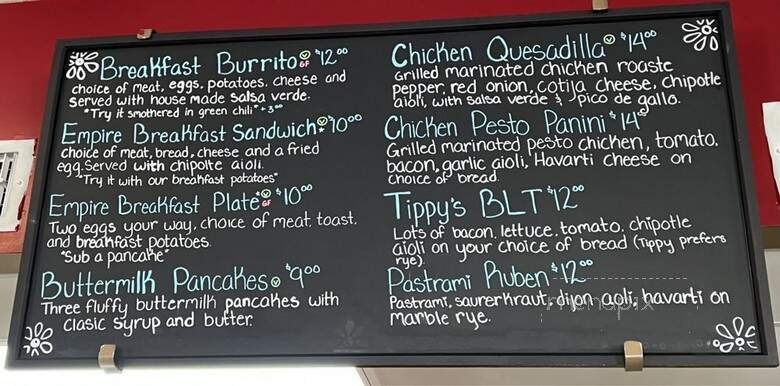 Breakfast Burrito GF $12.00
choice of meat, eggs, potatoes, cheese and
served with house made salsa verde.
"Try it smothered in green chili" +3.00
Empire Breakfast Sandwich $10.00
choice of meat, bread, cheese and a fried
egg. Served with chipolte aioli.
"Try it with our breakfast potatoes"
Empire Breakfast Plate GF $10.00
Two eggs your way, choice of meat, toast,
and breakfast potatoes.
"Sub a pancake"
Buttermilk Pancakes $9.00
Three fluffy buttermilk pancakes with
clasic syrup and butter.
Chicken Quesadilla $14.00
Grilled marinated chicken roaste
pepper, red onion, cotija cheese, chipotle
aioli, with salsa verde & pico de gallo.
Chicken Pesto Panini $14.00
Grilled marinated pesto chicken, tomato,
bacon, garlic aioli, Havarti cheese on
choice of bread.
Tippy's BLT $12.00
Lots of bacon, lettuce, tomato, chipotle
aioli on your choice of bread (Tippy prefers
rye).
Pastrami Ruben $12.00
Pastrami, saurerkraut, dijon aoli, havarti on
marble rye.
menupix